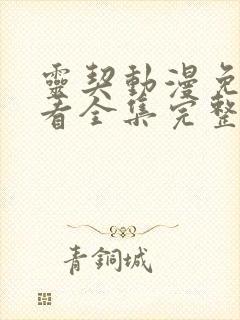 靈契動漫免
看全集完整
青銅城